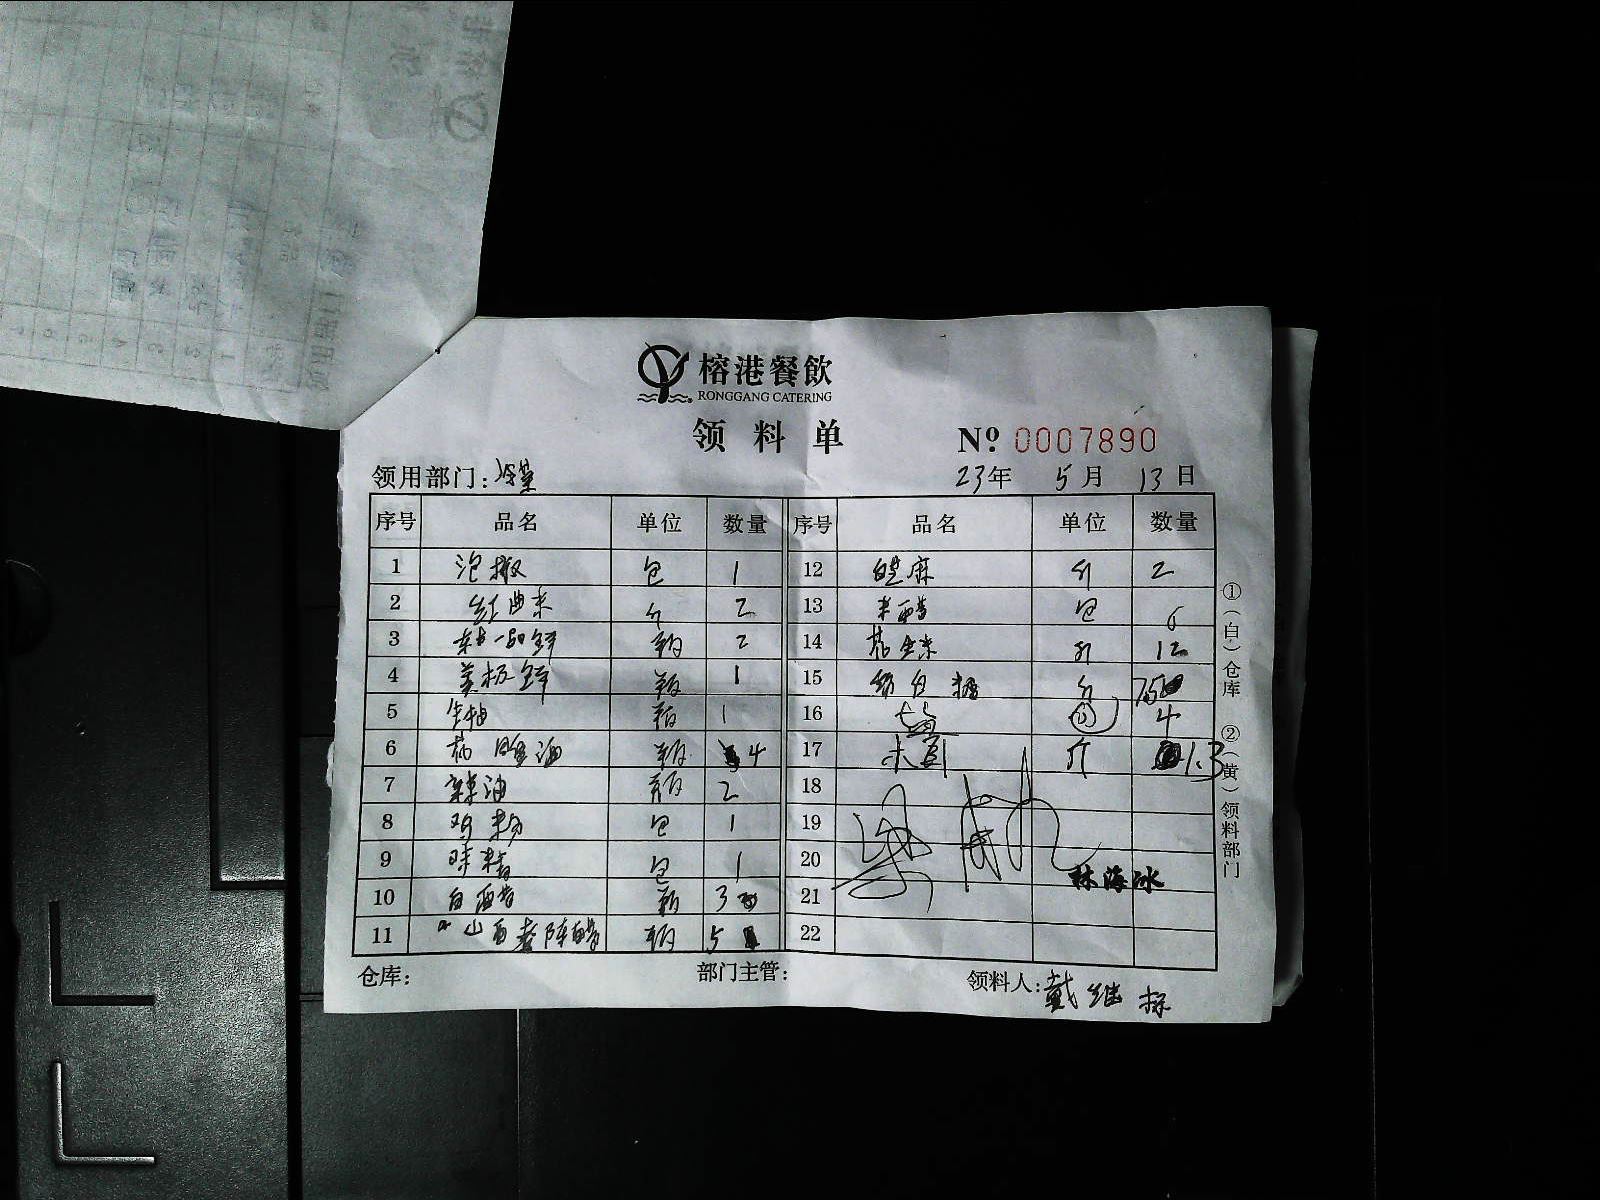 榕港餐飲
RONGGANG CATERING
领料单
Nº 0007890
领用部门：冷菜 23年 5月 13日
序号 品名 单位 数量 序号 品名 单位 数量
1 泡椒 包 1 12 白芝麻 斤 2
2 红曲米 斤 2 13 米醋 包 6
3 一品鲜 瓶 2 14 花生米 斤 12
4 美极鲜 瓶 1 15 绵白糖 斤
5 瓶 1 16 4
6 油 瓶 4 17 斤 1.3
7 辣油 瓶 2 18
8 鸡粉 包 1 19
9 味精 包 1 20
林海冰
10 白醋 瓶 3 21
11 山西老陈醋 瓶 5 22
仓库： 部门主管： 领料人：戴继
①（白）仓库 ②（黄）领料部门